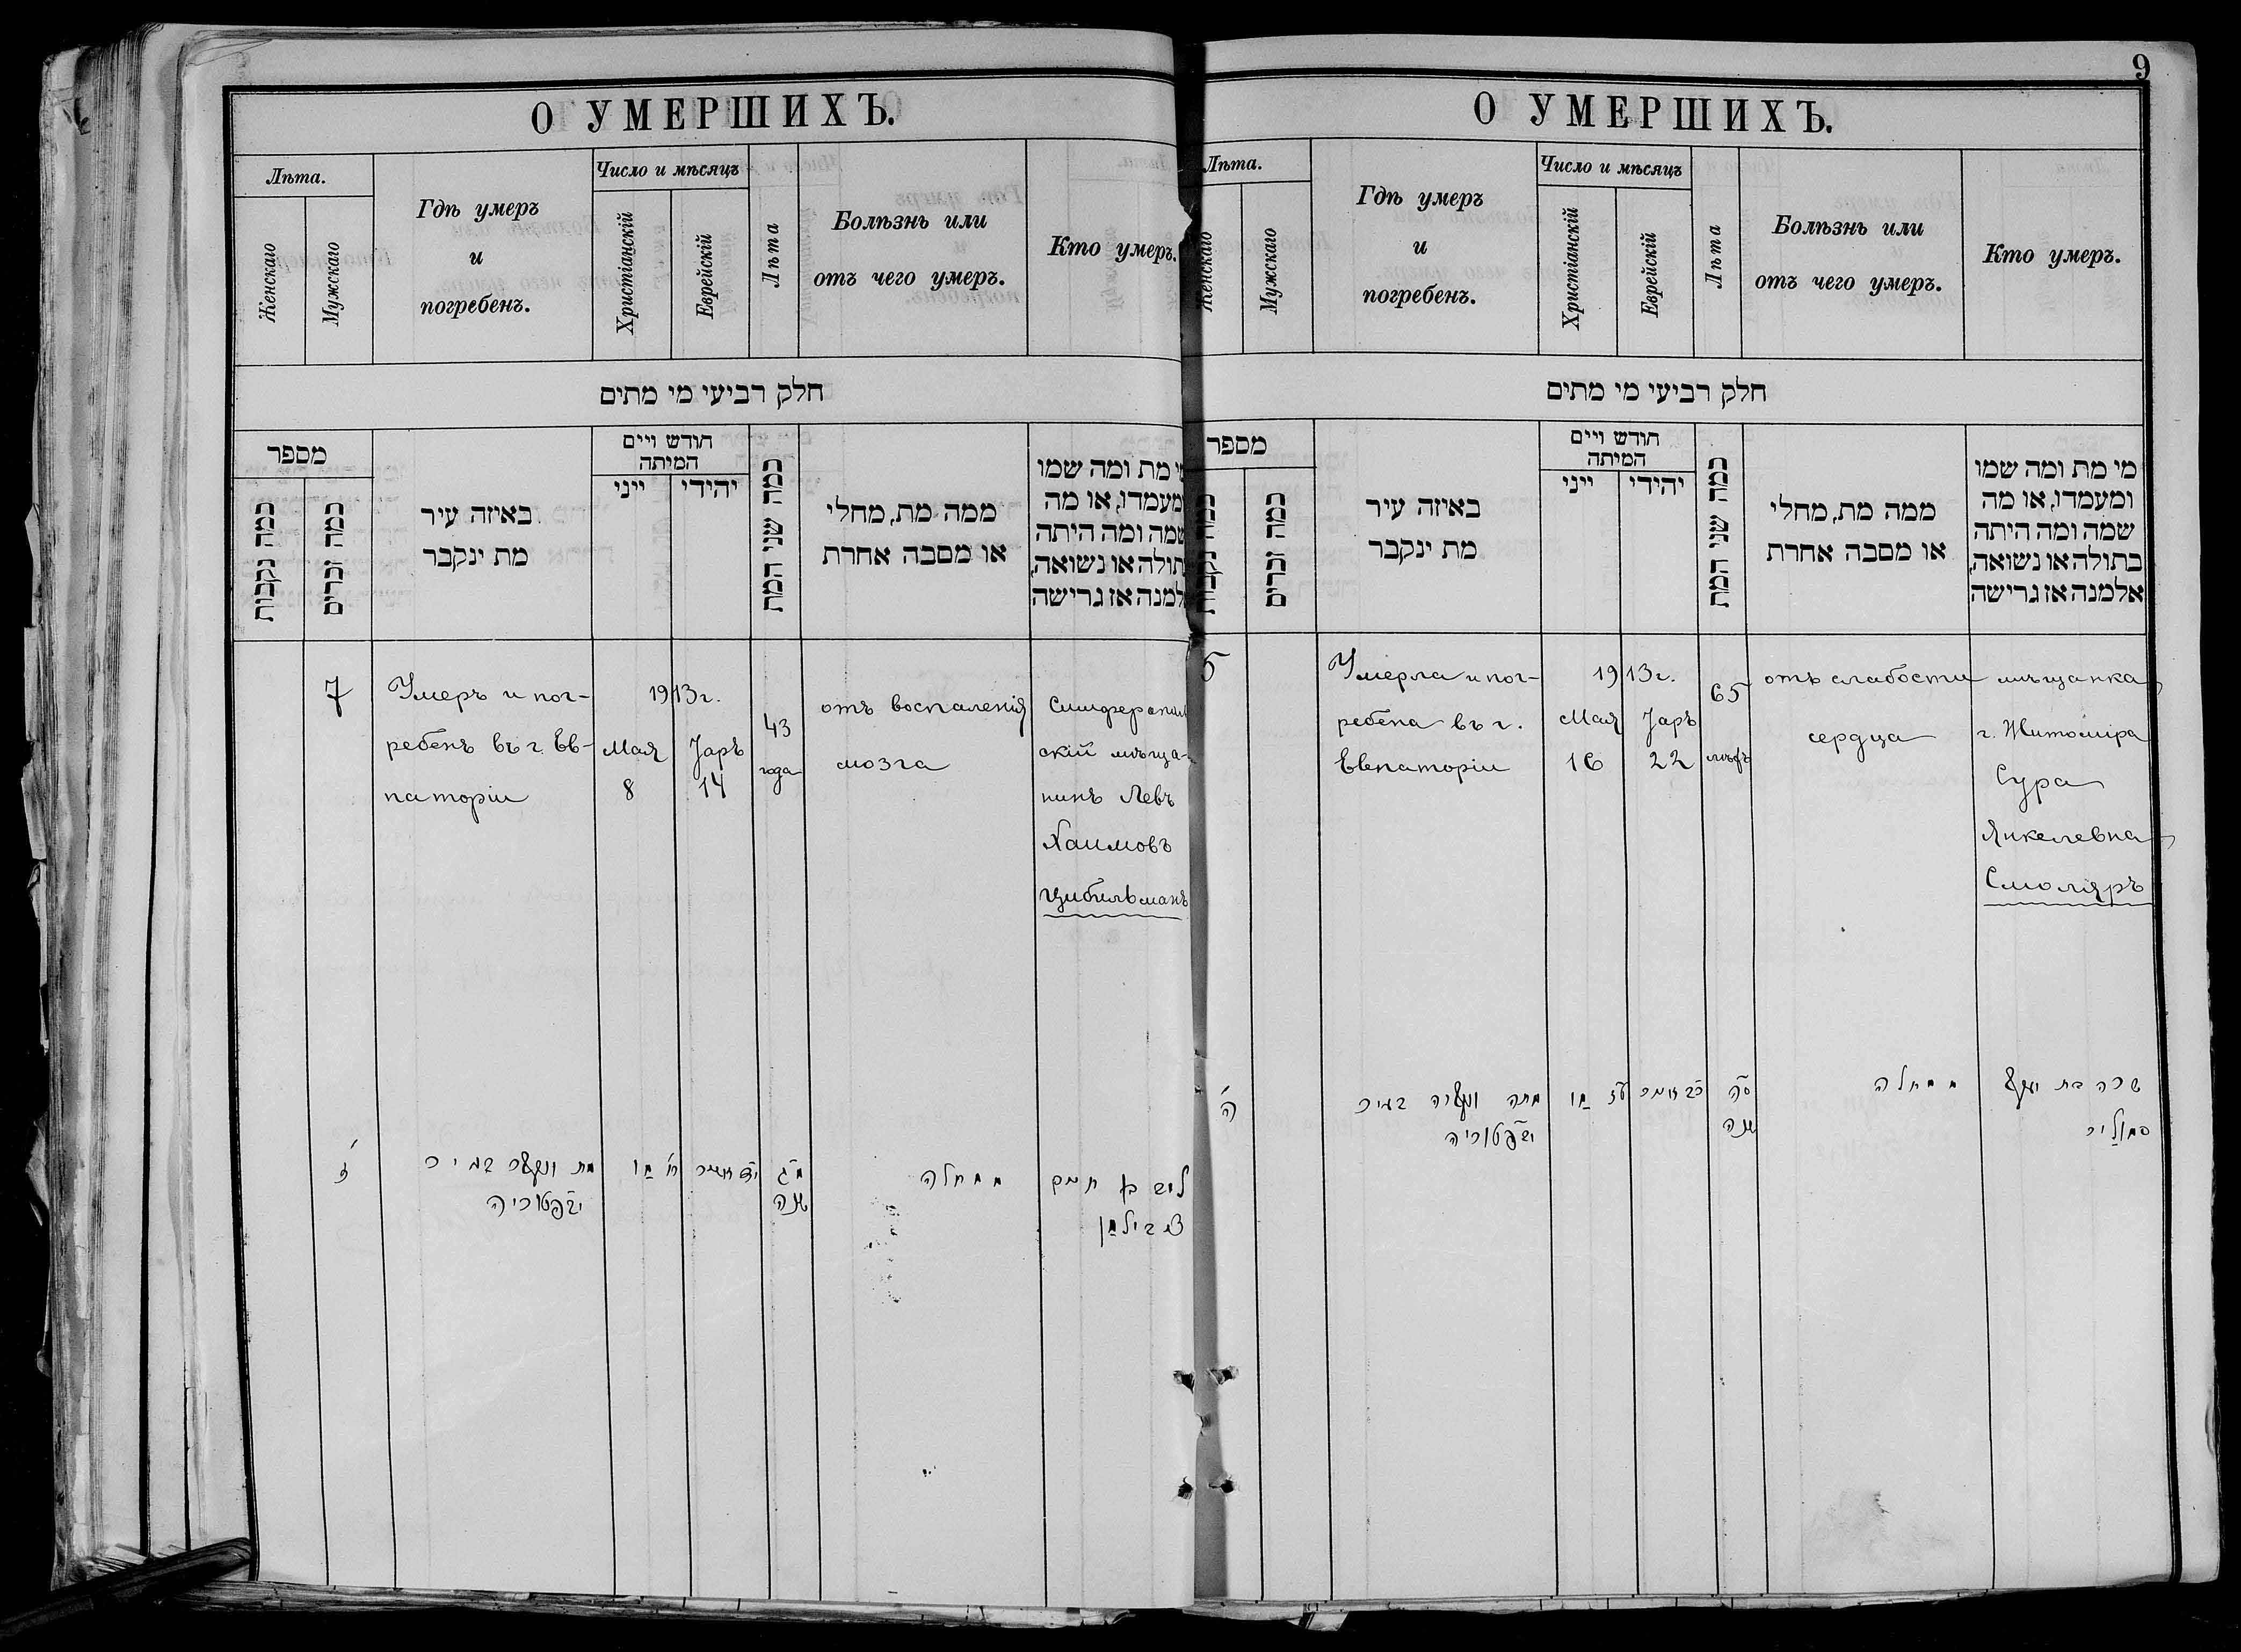 О УМЕРШИХЪ.
Лѣта.
Женскаго
Мужскаго
Гдѣ умеръ
и
погребенъ.
Число и мѣсяцъ
Христіанскій
Еврейскій
Лѣта
Болѣзнь или
отъ чего умеръ.
Кто умеръ.
חלק רביעי מי מתים
מספר
כמה נקבות
כמה זכרים
באיזה עיר
מת ינקבר
חודש ויים
המיתה
ייני
יהידי
כמה שני המת
ממה מת, מחלי
או מסבה אחרת
מי מת ומה שמו
ומעמדו, או מה
שמה ומה היתה
בתולה או נשואה,
אלמנה אז גרישה
7
Умеръ и пог-
ребенъ въ г. Ев-
паторіи
1913 г.
Мая
8
Іаръ
14
43
года
отъ воспаленія
мозга
Симферополь
скій мѣща-
нинъ Левъ
Хаимовъ
Цибильманъ
ז׳
מת ונקבר בעיר
יבפטוריה
ח׳ מו
י״ד אייר
מ״ג
שנה
ממחלה
ליב בן חיים
ציבילמן
9
О УМЕРШИХЪ.
Лѣта.
Женскаго
Мужскаго
Гдѣ умеръ
и
погребенъ.
Число и мѣсяцъ
Христіанскій
Еврейскій
Лѣта
Болѣзнь или
отъ чего умеръ.
Кто умеръ.
חלק רביעי מי מתים
מספר
כמה נקבות
כמה זכרים
באיזה עיר
מת ינקבר
חודש ויים
המיתה
ייני
יהידי
כמה שני המת
ממה מת, מחלי
או מסבה אחרת
מי מת ומה שמו
ומעמדו, או מה
שמה ומה היתה
בתולה או נשואה,
אלמנה אז גרישה
5
Умерла и пог-
ребена въ г.
Евпаторіи
1913 г.
Мая
16
Іаръ
22
65
лѣтъ
отъ слабости
сердца
мѣщанка
г. Житоміра
Сура
Янкелевна
Смоляръ
ה׳
מתה ונקברה בעיר
יבפטוריה
טז מו
כ״ב אייר
ס״ה
שנה
ממחלה
שרה בת יעקב
סמוליר